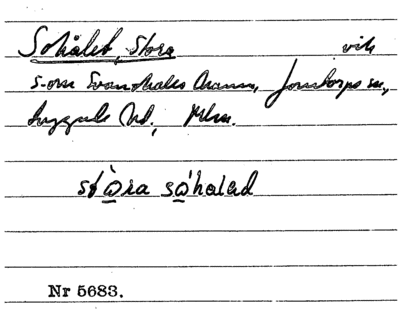 Sohålet, Stora vik
S-om Svanhales Aramm, Jonstorps sn,
Luggude hd, Mlm.
stòra só'halad
Nr 5683.